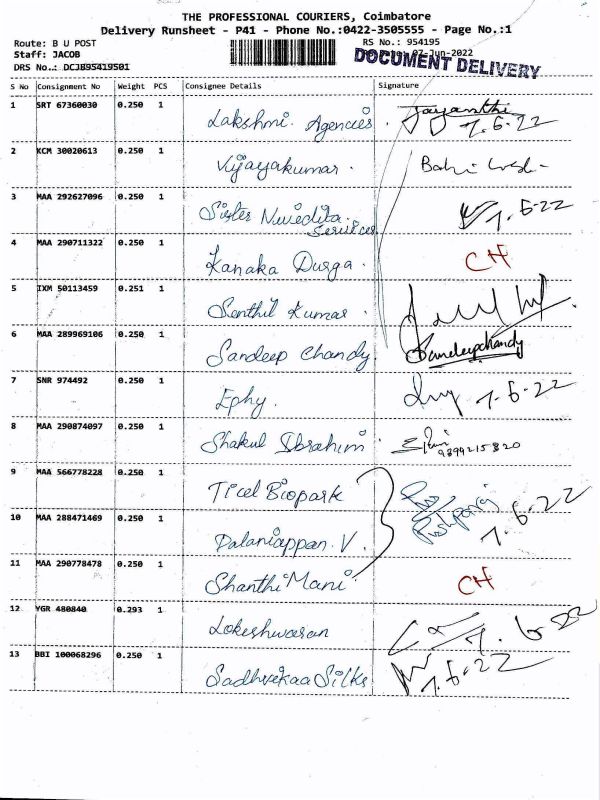 THE PROFESSIONAL COURIERS, Coimbatore
Delivery Runsheet - P41 - Phone No.:0422-3505555 - Page No.:1
Route: B U POST RS No.: 954195
Staff: JACOB 07-Jun-2022
DOCUMENT DELIVERY
DRS No..: DCJB95419501
S No Consignment No Weight PCS Consignee Details Signature
1 SRT 67360030 0.250 1 Lakshmi. Agencies. Jayanthi 7.6.22
2 KCM 30020613 0.250 1 Vijayakumar.
3 MAA 292627096 0.250 1 Sister Nivedita. Services 7.6-22
4 MAA 290711322 0.250 1 Kanaka Durga. CH
5 IXM 50113459 0.251 1 Senthil Kumar.
6 MAA 289969106 0.250 1 Sandeep Chandy Sandeepchandy
7 SNR 974492 0.250 1 Ephy. 7-6-22
8 MAA 290874097 0.250 1 Shakul Ibrahim.
9 MAA 566778228 0.250 1 Ticel Biopark Pushparaj 7.6.22
10 MAA 288471469 0.250 1 Palaniappan. V.
11 MAA 290778478 0.250 1 Shanthi Mani. CH
12 YGR 480840 0.293 1 Lokeshwaran 7.6-22
13 BBI 100068296 0.250 1 Sadhvekaa Silks 7.6-22